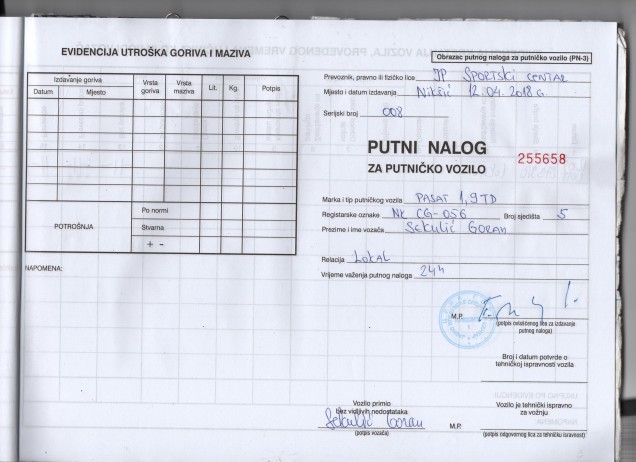 EVIDENCIJA UTROŠKA GORIVA I MAZIVA
Izdavanje goriva
Datum Mjesto Vrsta goriva Vrsta maziva Lit. Kg. Potpis
POTROŠNJA
Po normi
Stvarna
+ -
NAPOMENA:
Obrazac putnog naloga za putničko vozilo (PN-3)
Prevoznik, pravno ili fizičko lice JP SPORTSKI CENTAR
Mjesto i datum izdavanja Nikšić 12.04.2018 G.
Serijski broj 008
PUTNI NALOG
ZA PUTNIČKO VOZILO
255658
Marka i tip putničkog vozila PASAT 1,9 TD
Registarske oznake NK CG-056 Broj sjedišta 5
Prezime i ime vozača SEKULIĆ GORAN
Relacija LOKAL
Vrijeme važenja putnog naloga 24h
M.P.
(potpis ovlašćenog lica za izdavanje
putnog naloga)
Broj i datum potvrde o
tehničkoj ispravnosti vozila
Vozilo primio
bez vidljivih nedostataka
Sekulić Goran
(potpis vozača)
Vozilo je tehnički ispravno
za vožnju
M.P.
(potpis odgovornog lica za tehničku ispravnost)